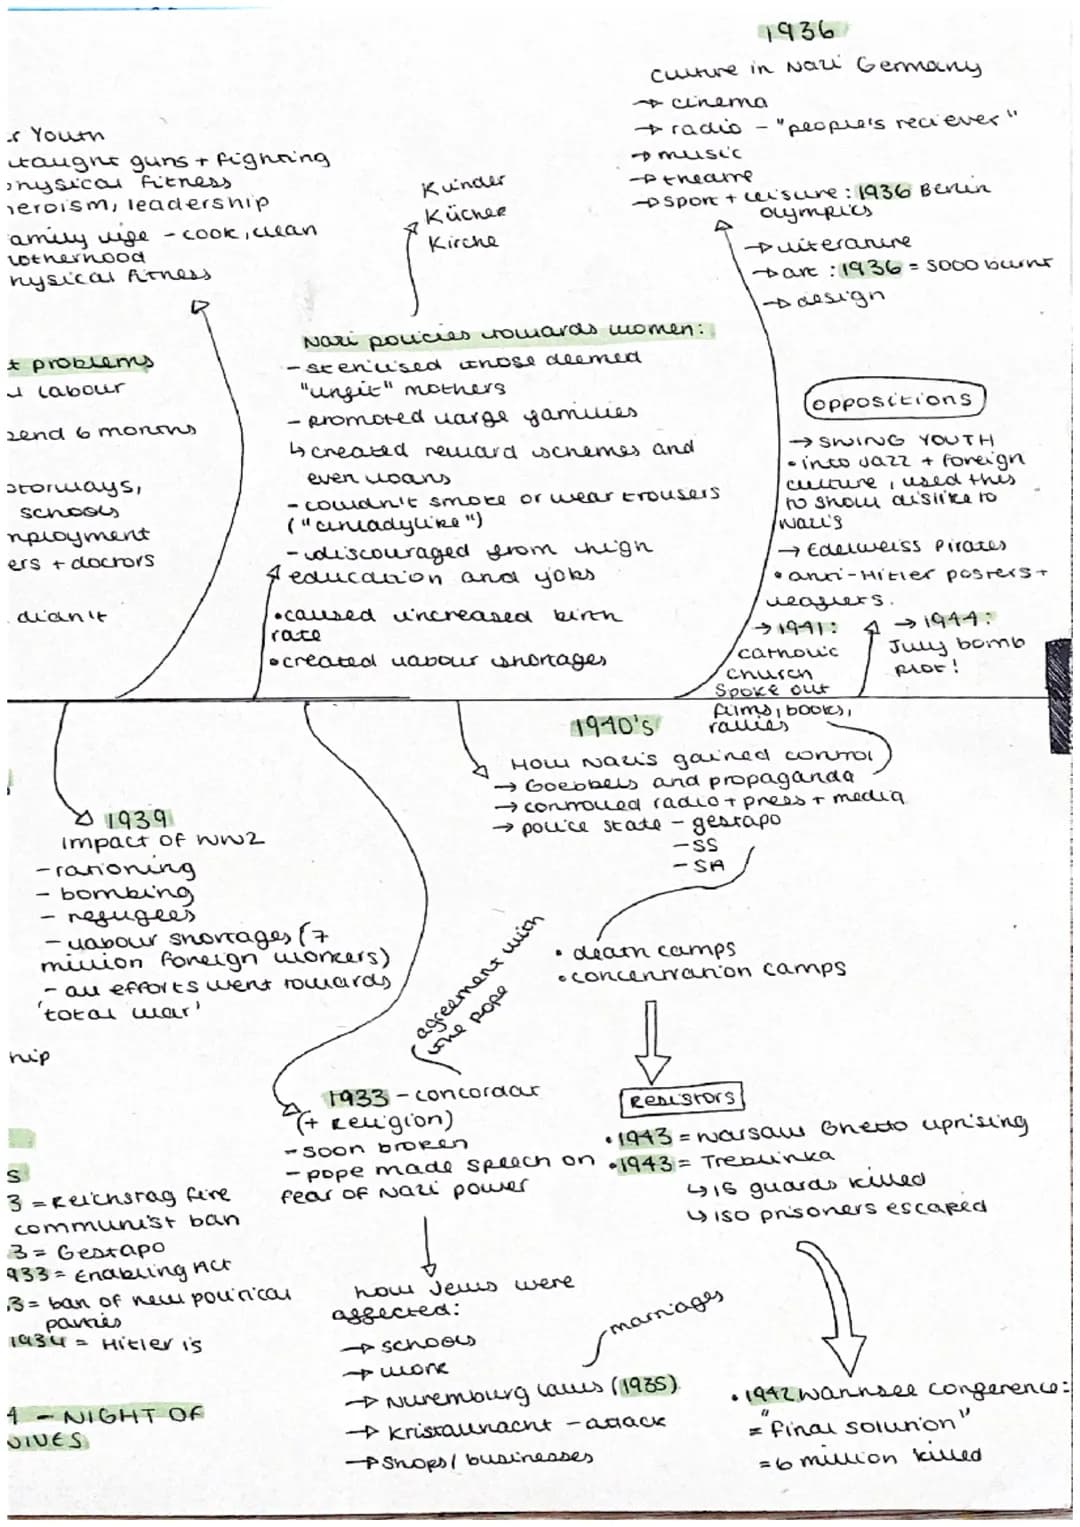 1936
culture in Nazi Germany
→ cinema
→ radio - "people's reciever"
→ music
→ theatre
→ sport + leisure : 1936 Berlin
olympics
→ literature
→ art : 1936 = 5000 burnt
→ design
r Youth
taught guns + fighting
physical fitness
heroism, leadership
family life - cook, clean
motherhood
physical fitness
Kuinder
Kücher
Kirche
t problems
labour
pend 6 months
otorways,
schools
mployment
ers + doctors
didn't
Nazi policies towards women:
- sterilised those deemed
"unfit" mothers
- promoted large families
↳ created reward schemes and
even loans
- couldn't smoke or wear trousers
("unladylike")
- discouraged from high
education and jobs
• caused increased birth
rate
• created labour shortages
oppositions
→ SWING YOUTH
• into jazz + foreign
culture, used this
to show dislike to
Nazi's
→ Edelweiss Pirates
• anti-Hitler posters +
leaflets.
→ 1941:
catholic
church
Spoke out
→ 1944:
July bomb
plot!
films, books,
rallies
1940's
How Nazi's gained control
→ Goebbels and propaganda
→ controlled radio + press + media
→ police state - gestapo
- SS
- SA
• death camps
• concentration camps
Resistors
• 1943 = Warsaw Ghetto uprising
• 1943 = Treblinka
↳ 15 guards killed
↳ 150 prisoners escaped
• 1942 Wannsee conference:
= "final solution"
= 6 million killed
1939
impact of WW2
- rationing
- bombing
- refugees
- labour shortages (7
million foreign workers)
- all efforts went towards
'total war'
hip
agreement with
the pope
1933 - concordat
(+ Religion)
- soon broken
- pope made speech on
fear of Nazi power
how Jews were
affected:
→ schools
→ work
→ Nuremburg laws (1935)
marriages
→ Kristallnacht - attack
→ Shops / businesses
s
3 = Reichstag fire
communist ban
3 = Gestapo
933 = Enabling Act
3 = ban of new political
parties
1934 = Hitler is
4 - NIGHT OF
NIVES